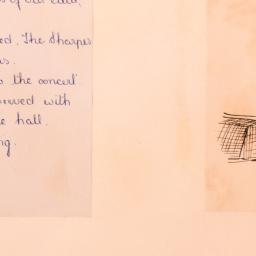 of our
ed. The Sharpes
s.
o the concert
owed with
e hall.
ng.